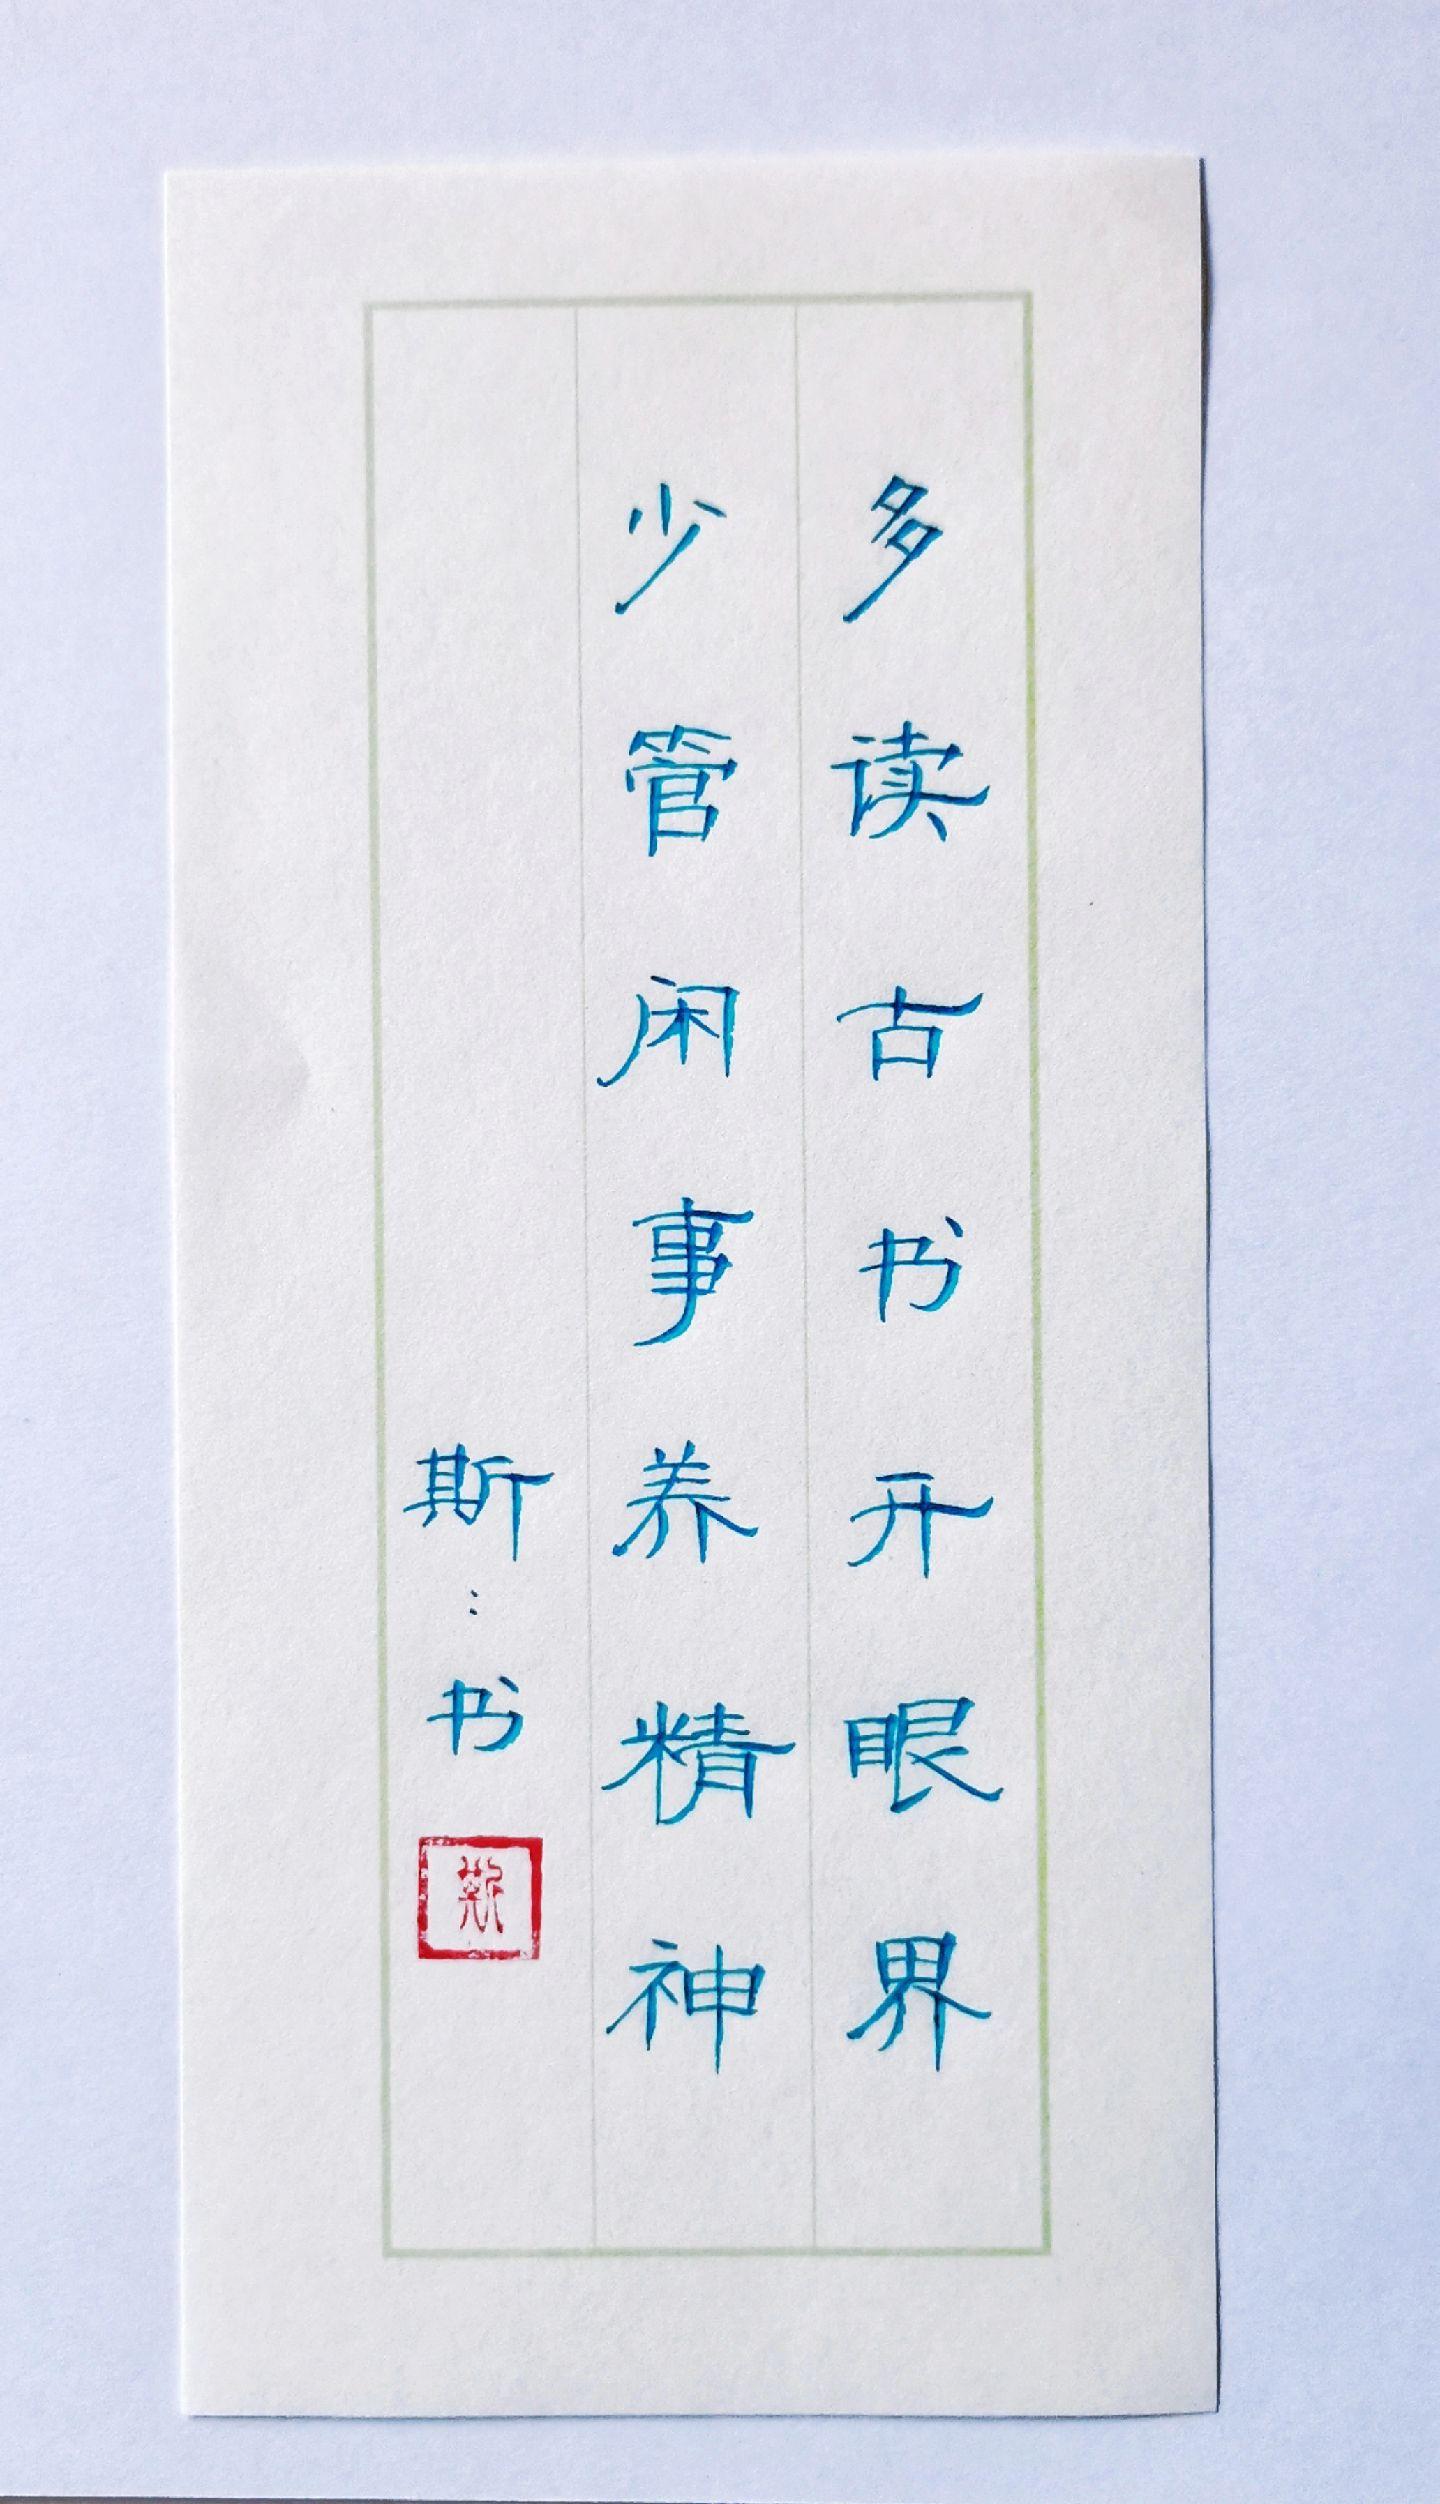 多读古书开眼界
少管闲事养精神
斯:书
斯